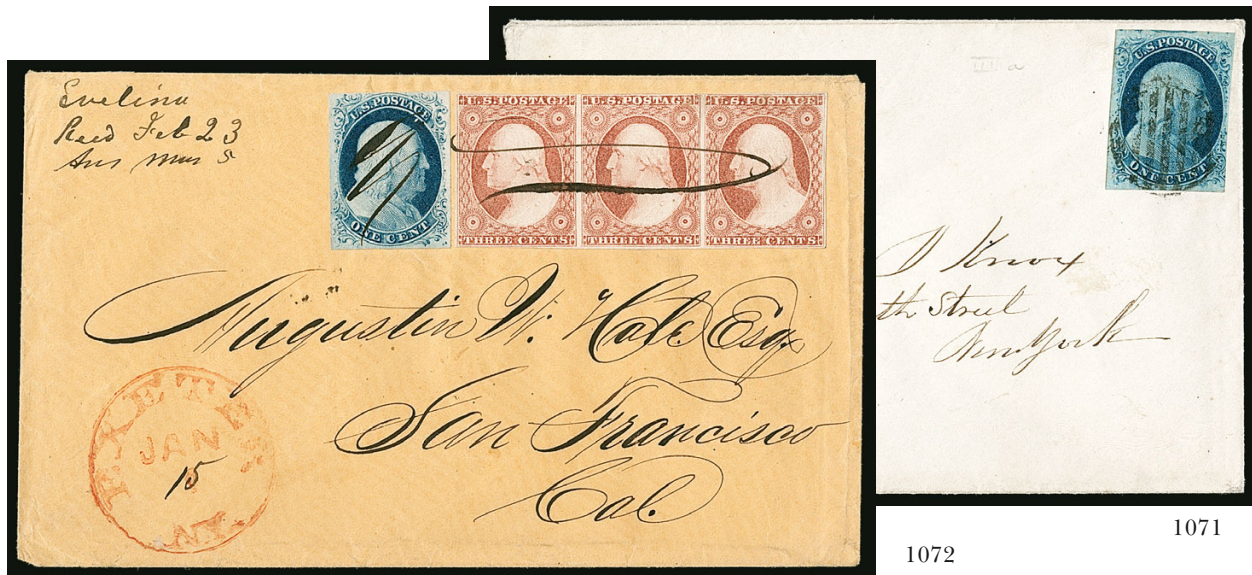 Evelina
Recd Feb 23
Ans Mar 5
U.S. POSTAGE
ONE CENT
U.S. POSTAGE
THREE CENTS
U.S. POSTAGE
THREE CENTS
U.S. POSTAGE
THREE CENTS
Augustin W. Hale Esq
San Francisco
Cal.
EXETER
JAN
15
N.Y.
U.S. POSTAGE
ONE CENT
D Knox
th Street
New York
1072
1071